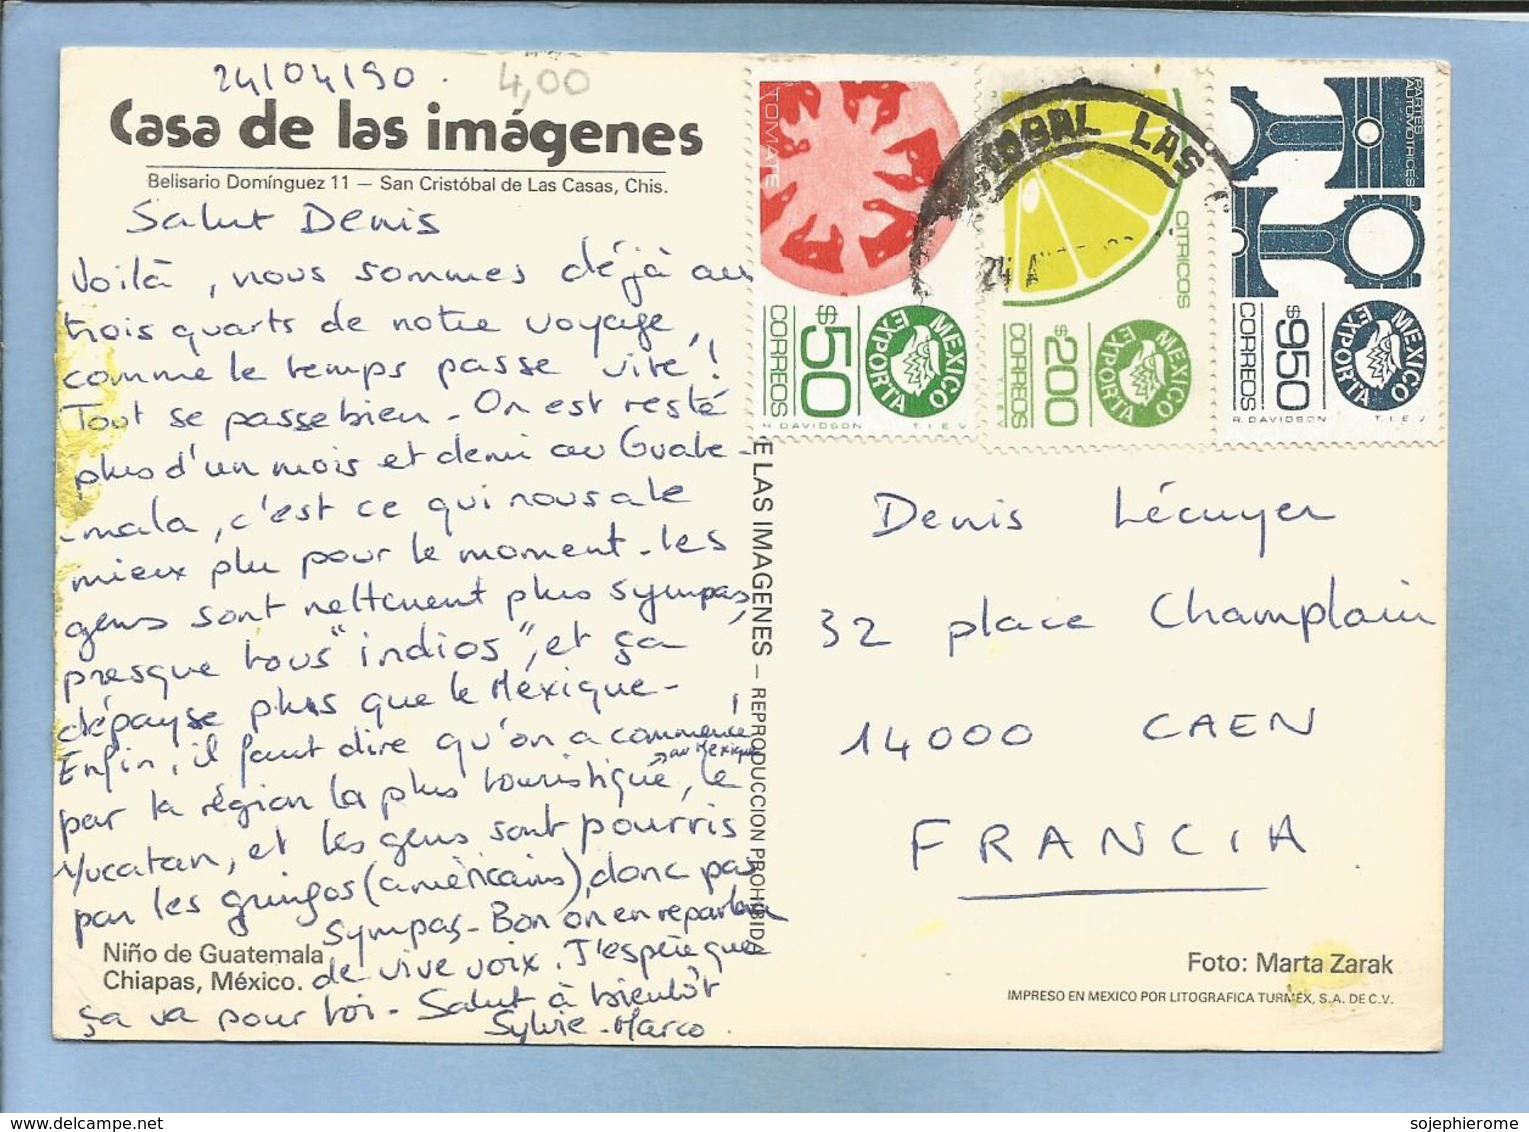 24/04/90.
4,00
Casa de las imágenes
Belisario Domínguez 11 — San Cristóbal de Las Casas, Chis.
Salut Denis
Voilà, nous sommes déjà au
trois quarts de notre voyage,
comme le temps passe vite !
Tout se passe bien - On est resté
plus d'un mois et demi au Guate-
-mala, c'est ce qui nous a le
mieux plu pour le moment - les
gens sont nettement plus sympas,
presque tous "indios", et ça
dépayse plus que le Méxique -
Enfin, il faut dire qu'on a commencé
au Mexique
par la région la plus touristique, le
Yucatan, et les gens sont pourris
par les gringos (américains), donc pas
sympas - Bon on en reparlera
de vive voix. J'espère que
ça va pour toi - Salut à bientôt
Sylvie - Marco.
Niño de Guatemala
Chiapas, México.
E LAS IMAGENES – REPRODUCCION PROHIBIDA
TOMATE
$50
CORREOS
MEXICO EXPORTA
DAVIDSON T.I.E.V
CITRICOS
$200
CORREOS
MEXICO EXPORTA
PARTES AUTOMOTRICES
$950
CORREOS
MEXICO EXPORTA
R. DAVIDSON T.I.E.V
OBAL LAS C
24 A
Denis Lécuyer
32 place Champlain
14000 CAEN
FRANCIA.
Foto: Marta Zarak
IMPRESO EN MEXICO POR LITOGRAFICA TURMEX, S.A. DE C.V.
sojephierome